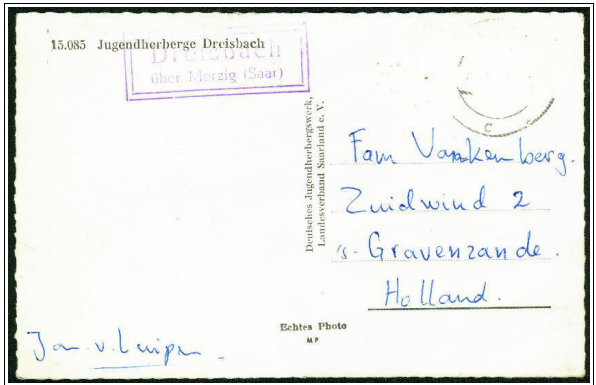 15.085 Jugendherberge Dreisbach
Dreisbach
über Merzig (Saar)
Deutsches Jugendherbergswerk,
Landesverband Saarland e. V.
Fam Vankenberg.
Zuidwind 2
's-Gravenzande.
Holland.
Echtes Photo
MP
Jan v.